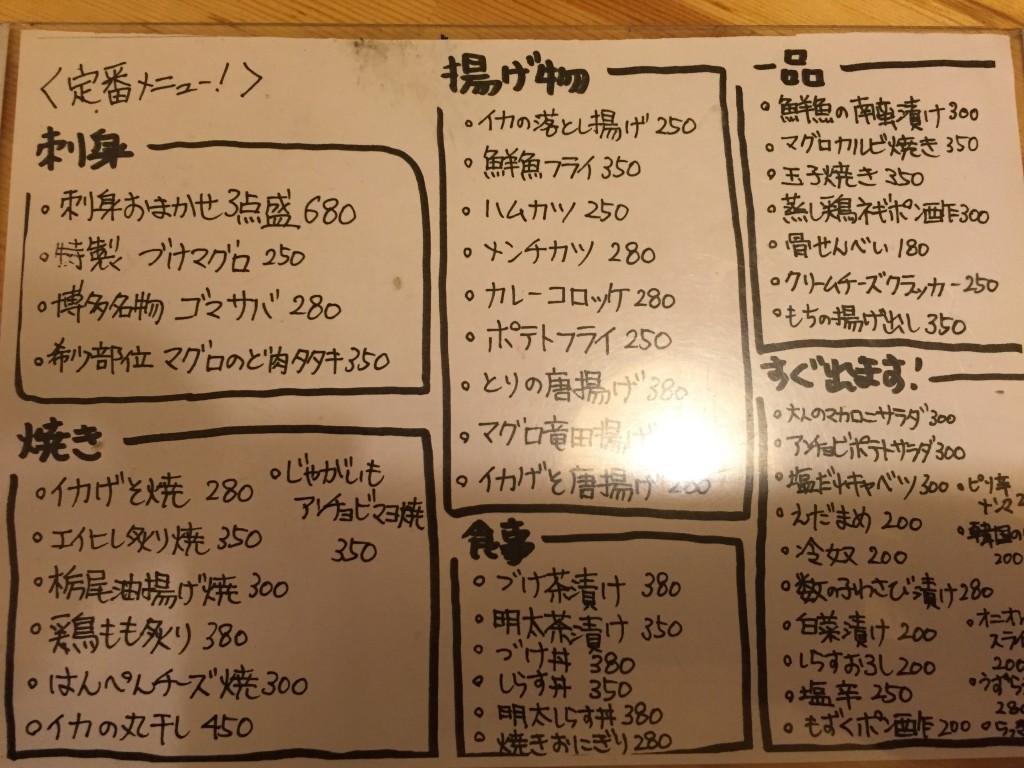 〈定番メニュー!〉
刺身
・刺身おまかせ3点盛 680
・特製 づけマグロ 250
・博多名物 ゴマサバ 280
・希少部位 マグロのど肉タタキ 350
焼き
・イカげそ焼 280
・エイヒレ炙り焼 350
・栃尾油揚げ焼 300
・鶏もも炙り 380
・はんぺんチーズ焼 300
・イカの丸干し 450
・じゃがいも
アンチョビマヨ焼
350
揚げ物
・イカの落とし揚げ 250
・鮮魚フライ 350
・ハムカツ 250
・メンチカツ 280
・カレーコロッケ 280
・ポテトフライ 250
・とりの唐揚げ 380
・マグロ竜田揚げ
・イカゲそ唐揚げ
食事
・づけ茶漬け 380
・明太茶漬け 350
・づけ丼 380
・しらす丼 350
・明太しらす丼 380
・焼きおにぎり 280
一品
・鮮魚の南蛮漬け 300
・マグロカルビ焼き 350
・玉子焼き 350
・蒸し鶏ネギポン酢 300
・骨せんべい 180
・クリームチーズクラッカー 250
・もちの揚げ出し 350
すぐ出ます!
・大人のマカロニサラダ 300
・アンチョビポテトサラダ 300
・塩だれキャベツ 300
・えだまめ 200
・冷奴 200
・数の子わさび漬け 280
・白菜漬け 200
・しらすおろし 200
・塩辛 250
・もずくポン酢 200
・ピリ辛
・韓国の
200
・オニオン
スライ
200
・うずら
280